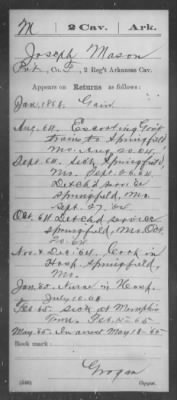 M 2 Cav. Ark.
Joseph Mason
Pvt., Co. F, 2 Reg't Arkansas Cav.
Appears on Returns as follows:
Jan. 186 . Gain
Aug. 64. Escorting Gov't
trains to Springfield
Mo. Aug. 20.64.
Sept. 64. Sick, Springfield,
Mo. Sept. 64.
Detch'd service
Springfield, Mo.
Sept. 27, 64
Oct. 64 Detch'd service
Springfield, Mo. Oct.
20.64
Nov. & Dec. 64. Cook in
Hosp. Springfield,
Mo.
Jan. 65. Nurse in Hosp.
July 10.64
Feb. 65 Sick at Memphis
Tenn. Feb. 65
May. 65. In arrest May 18-65
Book mark:
Grogan
(546) Copyist.